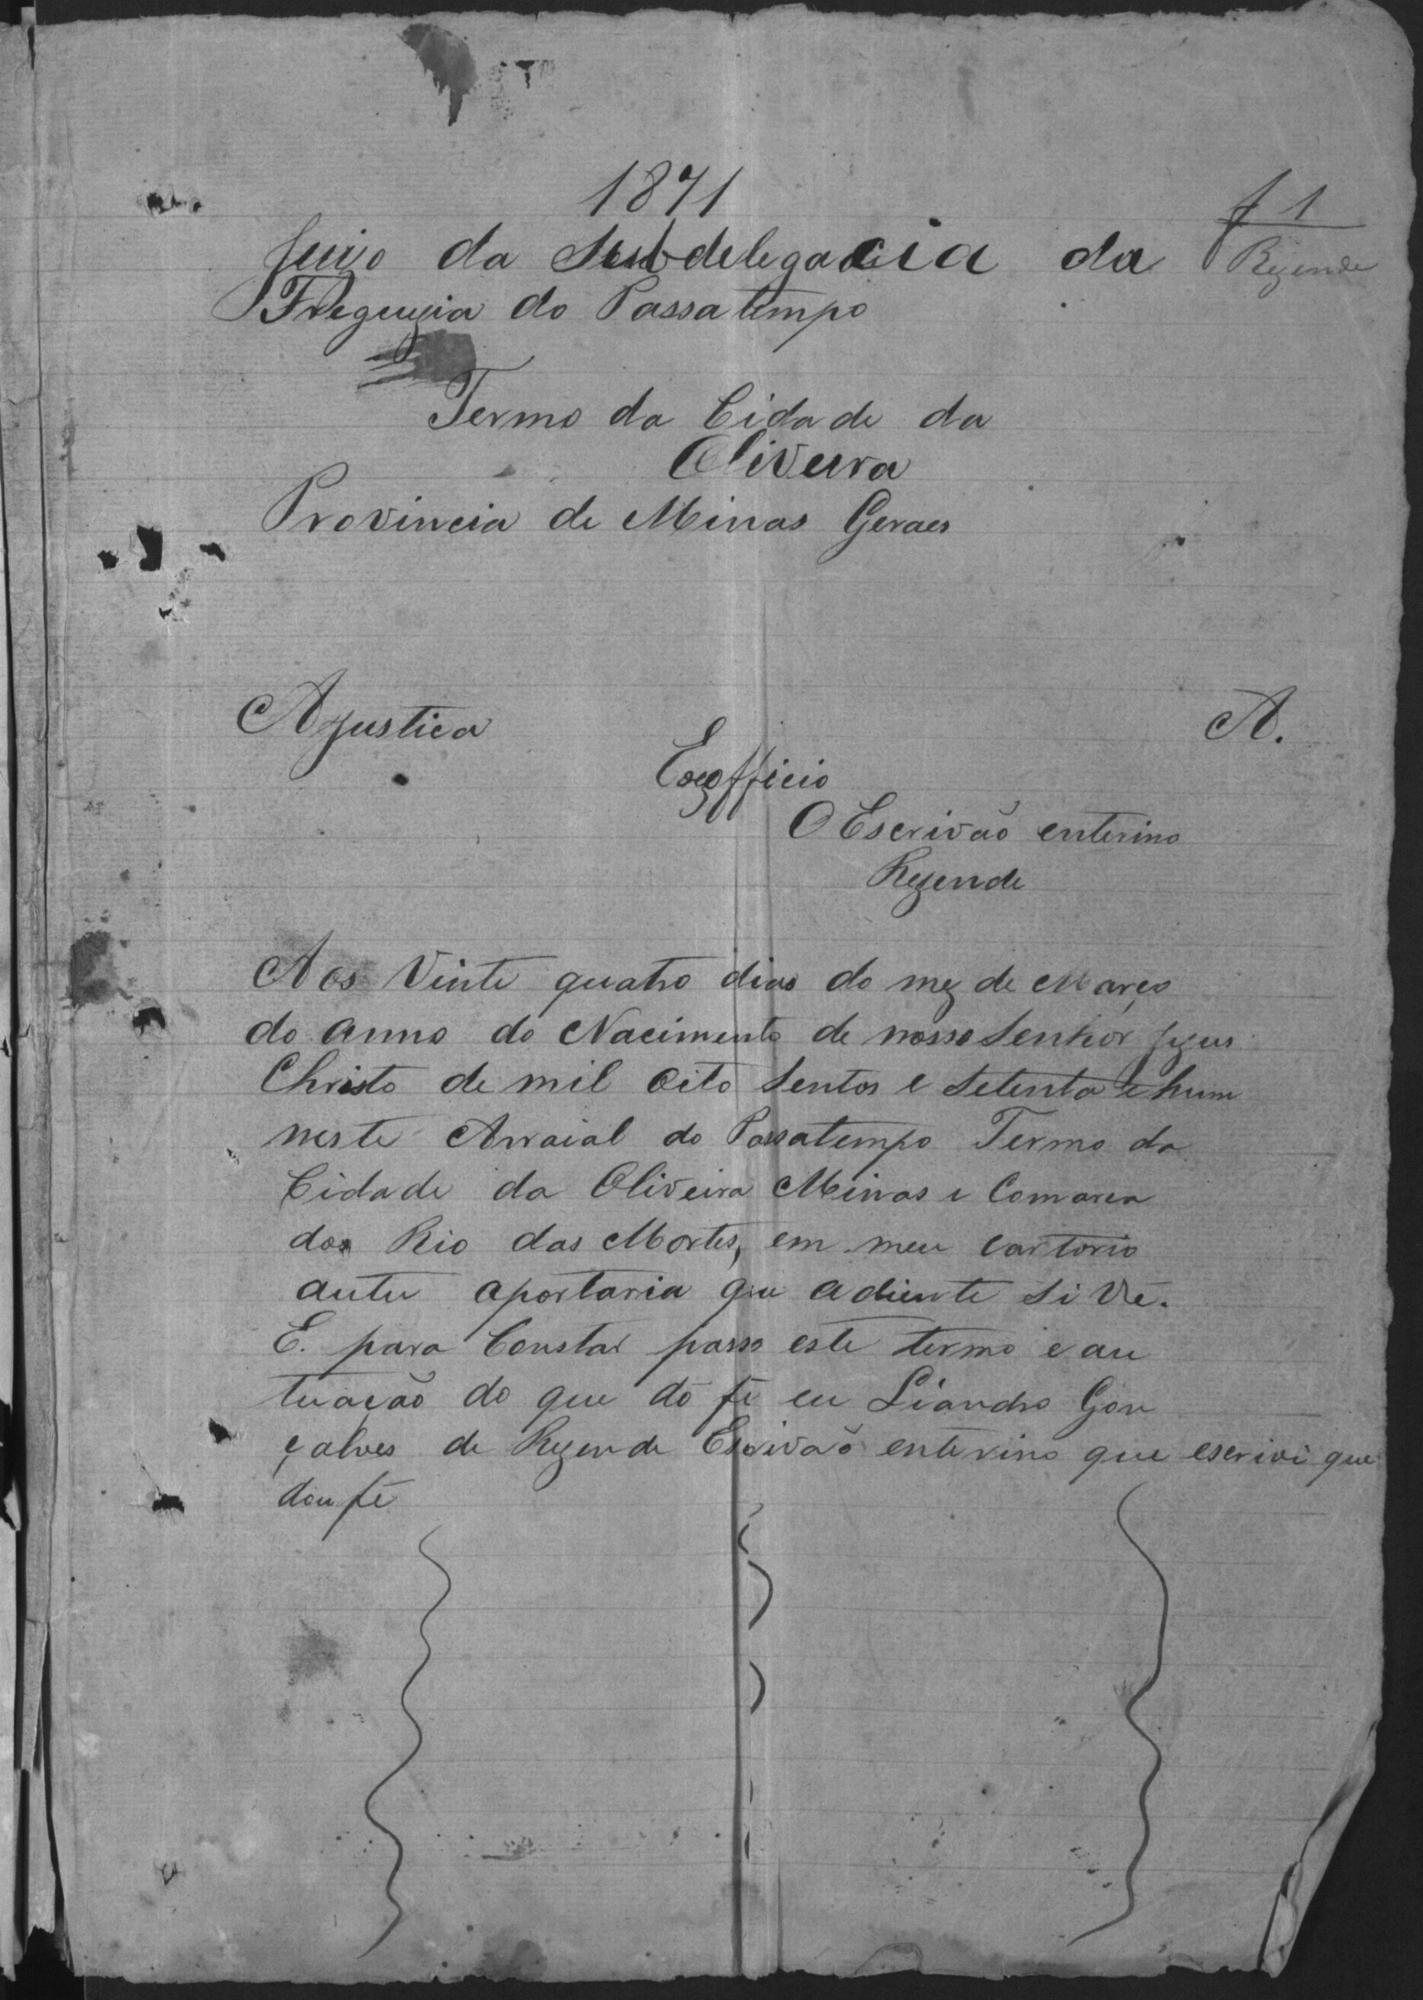 1871
f 1
Juizo da Subdelegacia da
Rezende
Freguezia do Passatempo
Termo da Cidade da
Oliveira
Provincia de Minas Geraes
A Justica
A.
Exofficio
O Escrivão enterino
Rezende
Aos Vinte quatro dias do mez de Março
do anno do Nacimento de nosso Senhor Jezus
Christo de mil oito Sentos e Setenta e hum
neste Arraial do Passatempo Termo da
Cidade da Oliveira Minas e Comarca
do Rio das Mortes, em meu cartorio
autu aportaria que adiente Si Vê.
E. para Constar passo este termo e au
tuação do que dó fé eu Liandro Gon
çalves de Rezende Escrivão enterino que escrivi que
dou fé